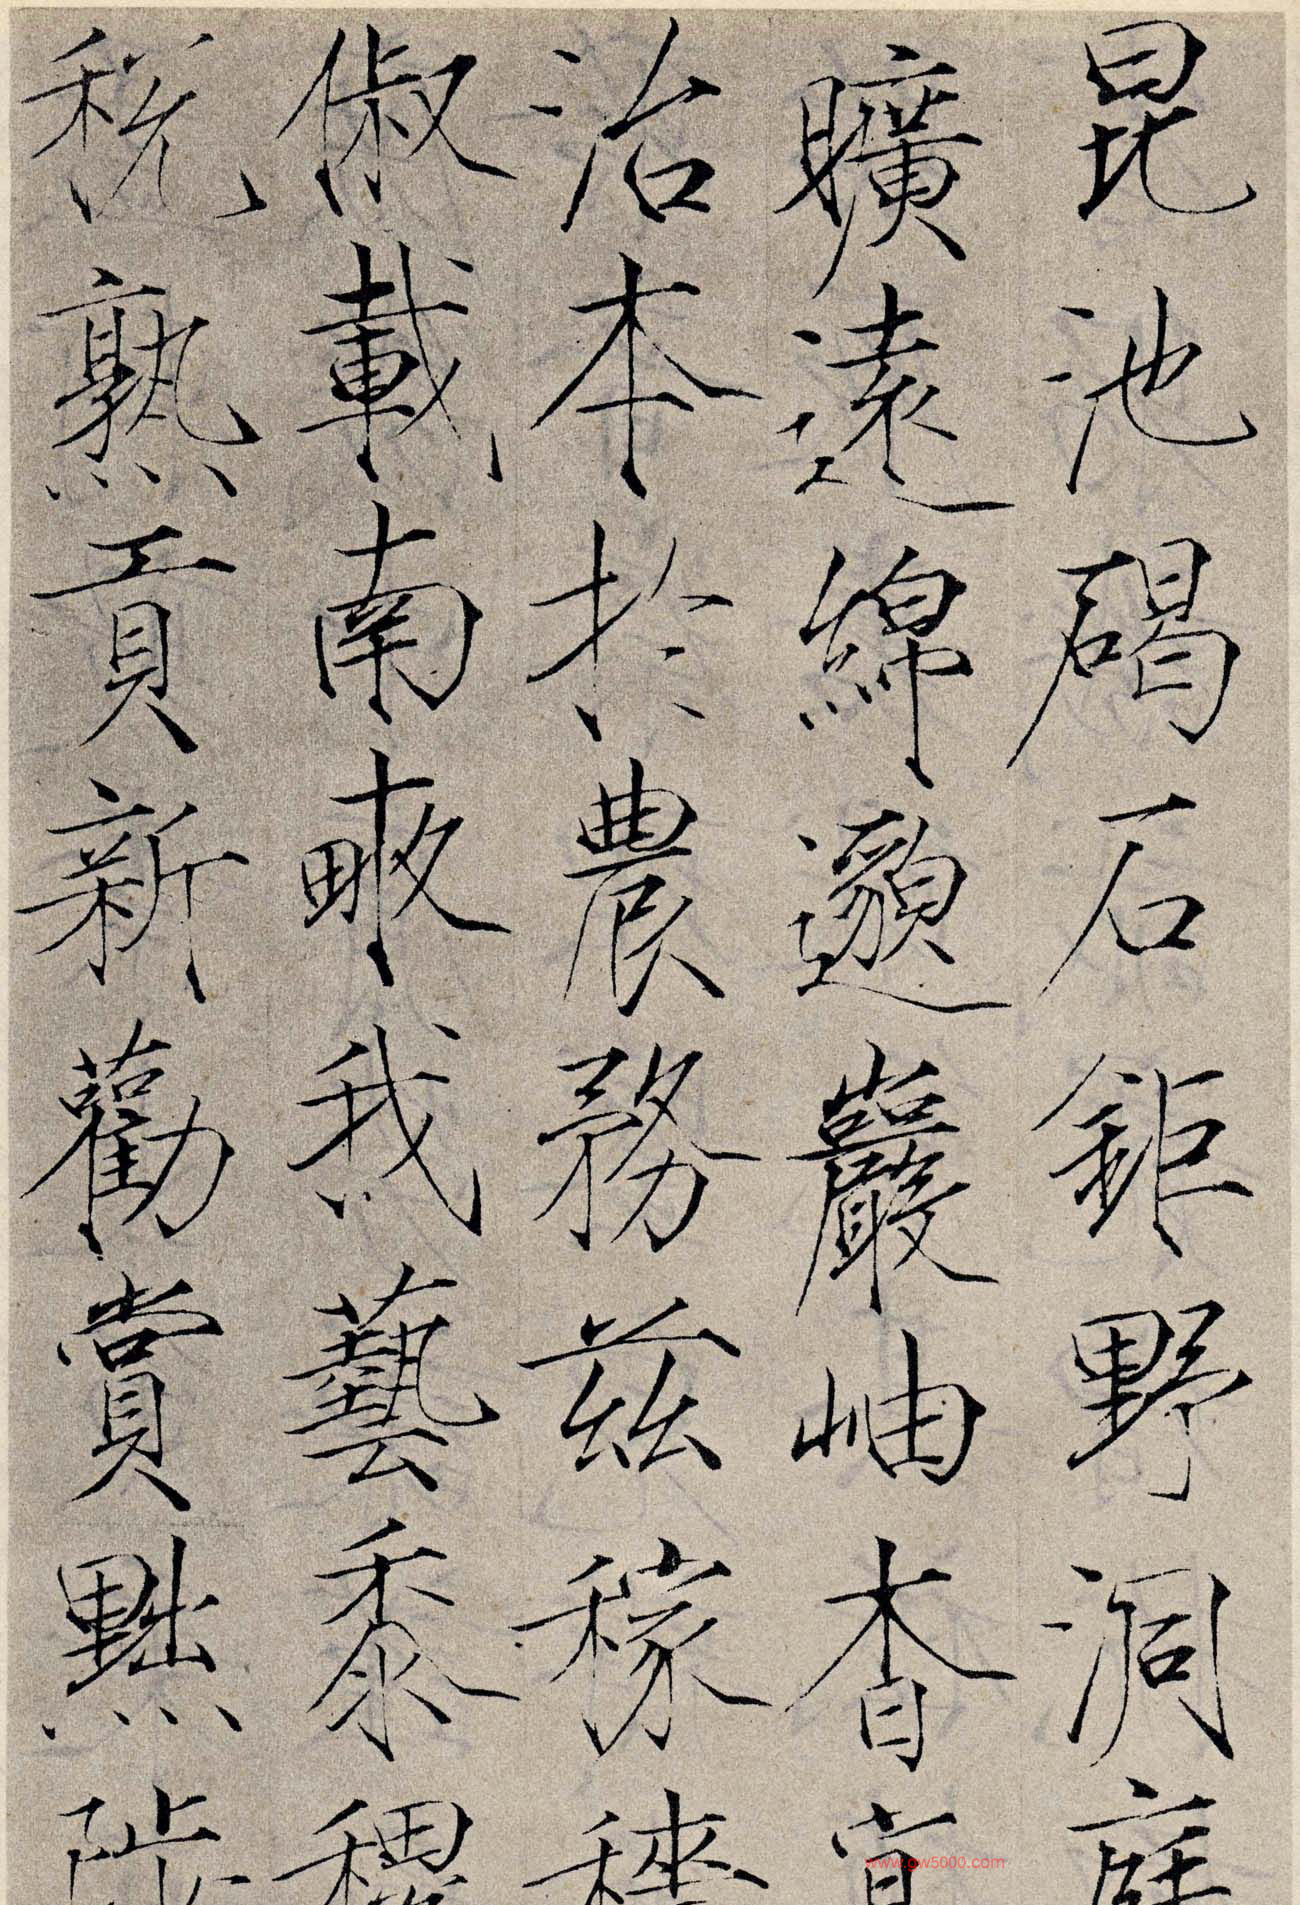 昆池碣石鉅野洞庭
曠遠綿邈巖岫杳冥
治本於農務茲稼穡
俶載南畝我藝黍稷
稅熟貢新勸賞黜陟
www.gw5000.com